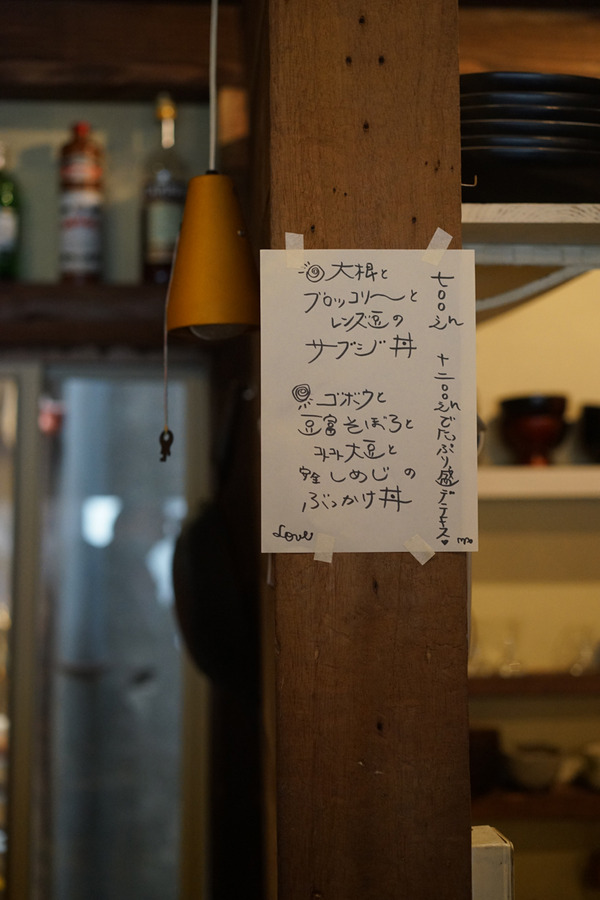 大根と
ブロッコリーと
レンズ豆の
サブジ丼
ゴボウと
豆富そぼろと
コトコト大豆と
しめじの
ぶっかけ丼
Love
七〇〇えん
十二〇〇えんでたっぷり盛デキマス♥